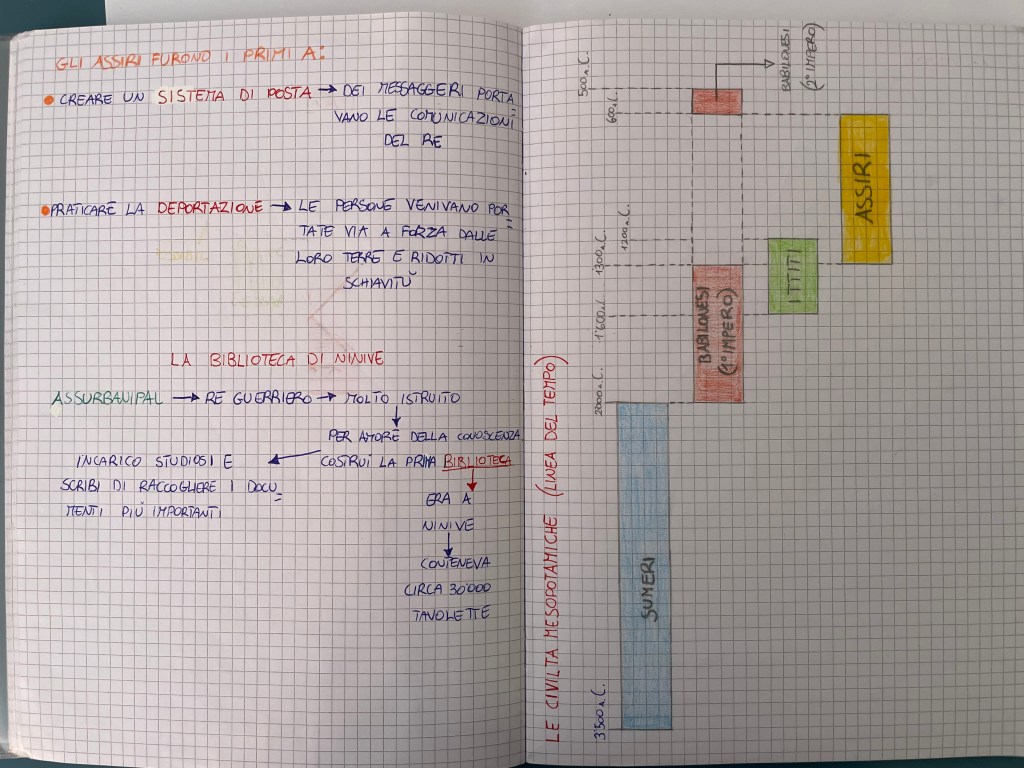 GLI ASSIRI FURONO I PRIMI A:
• CREARE UN SISTEMA DI POSTA → DEI MESSAGGERI PORTA
VANO LE COMUNICAZIONI
DEL RE
• PRATICARE LA DEPORTAZIONE → LE PERSONE VENIVANO POR
TATE VIA A FORZA DALLE
LORO TERRE E RIDOTTI IN
SCHIAVITÙ
LA BIBLIOTECA DI NINIVE
ASSURBANIPAL → RE GUERRIERO → MOLTO ISTRUITO
PER AMORE DELLA CONOSCENZA
COSTRUÌ LA PRIMA BIBLIOTECA
INCARICO STUDIOSI E
SCRIBI DI RACCOGLIERE I DOCU
MENTI PIÙ IMPORTANTI
ERA A
NINIVE
CONTENEVA
CIRCA 30'000
TAVOLETTE
LE CIVILTA MESOPOTAMICHE (LINEA DEL TEMPO)
3'500 a.C.
2000 a.C.
1'600 a.C.
1300 a.C.
1200 a.C.
600 a.C.
500 a.C.
SUMERI
BABILONESI
(1° IMPERO)
BABILONESI
(2° IMPERO)
ITTITI
ASSIRI